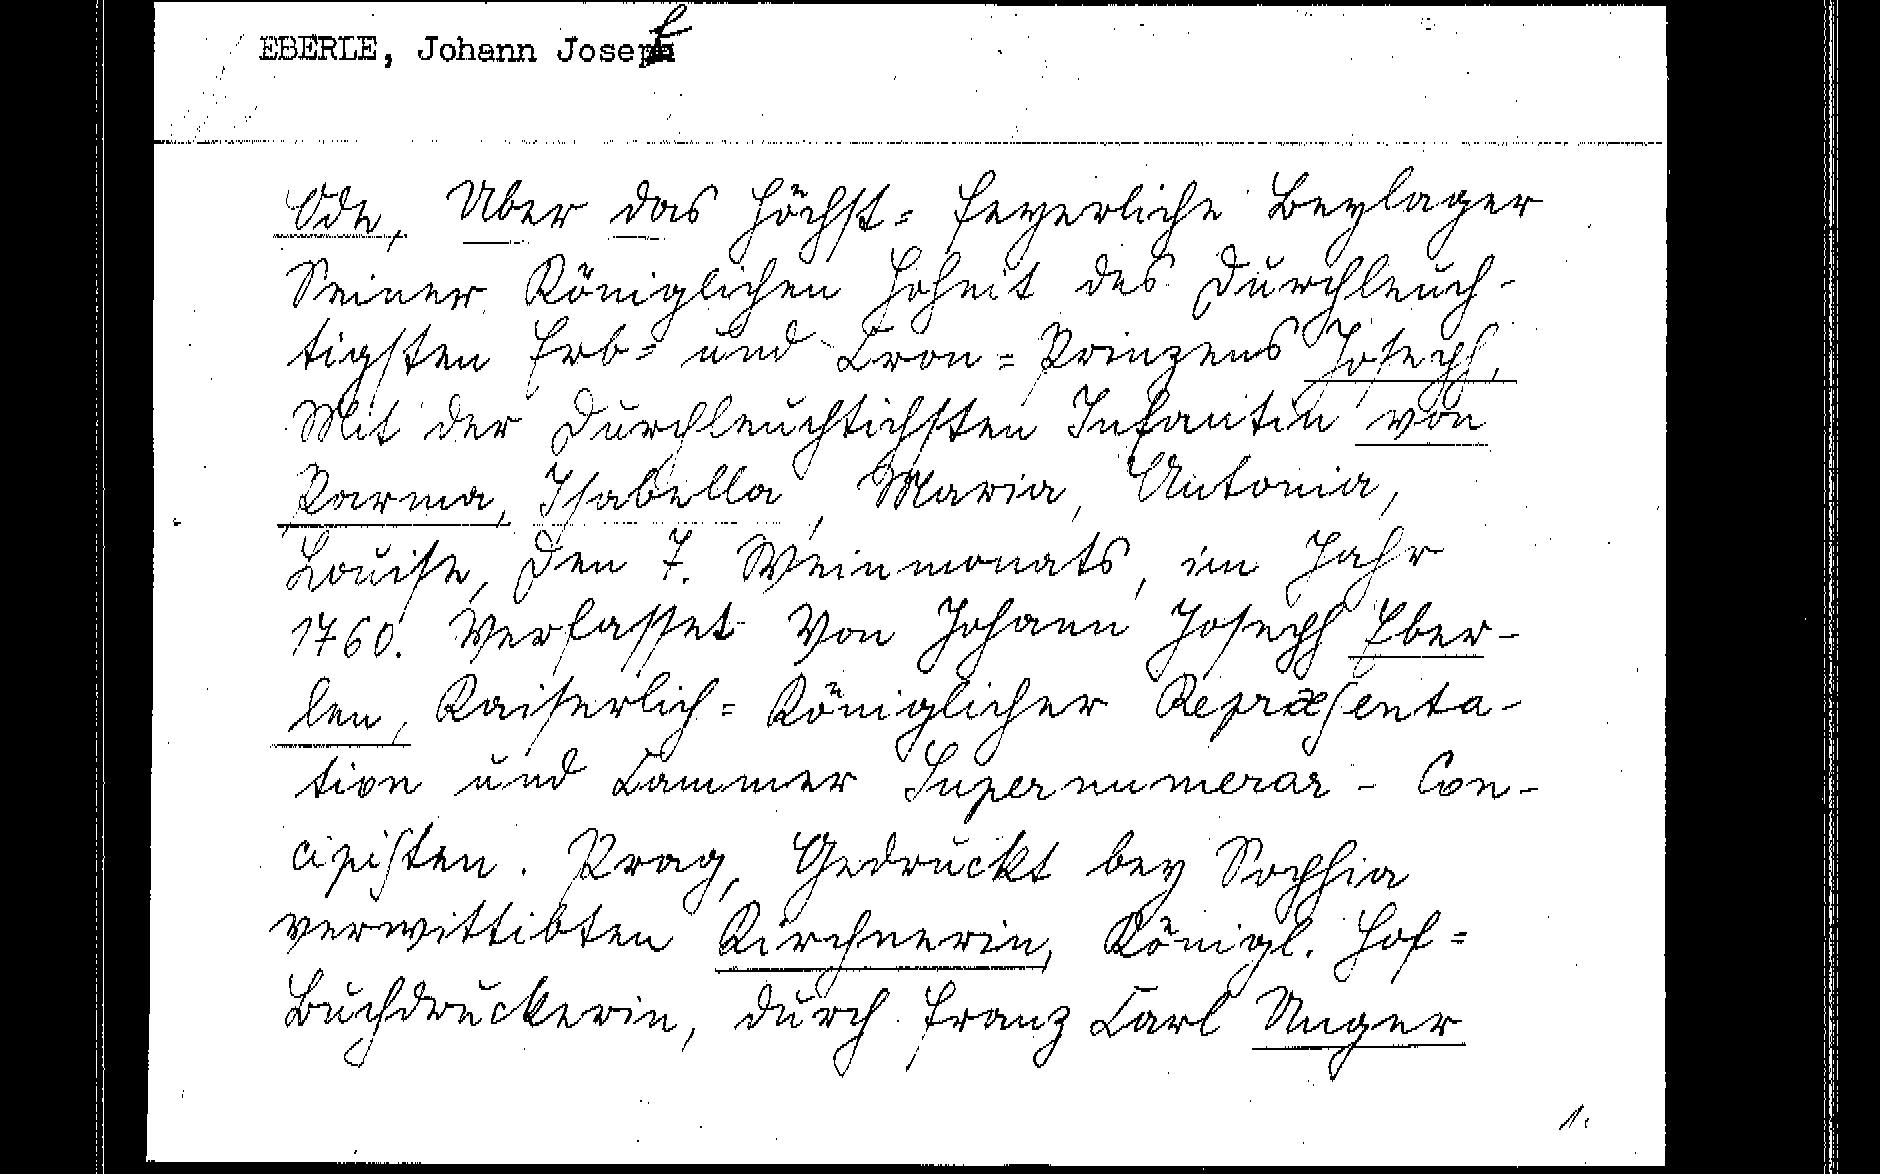 EBERLE, Johann Josef
Ode, Uber das höchst= feyerliche Beylager
Seiner Königlichen Hoheit des Durchleuch-
tigsten Erb= und Cron=Prinzens Joseph,
Mit der Durchleuchtichsten Infantin von
Parma, Isabella, Maria, Antonia,
Louise, Den 7. Weinmonats, im Jahr
1760. Verfasset Von Johann Joseph Eber-
len, Kaiserlich=Königlicher Repræsenta-
tion und Cammer Supernumerar - Con-
cipisten. Prag, Gedruckt bey Sophia
verwittibten Kirchnerin, Königl. Hof=
Buchdruckerin, durch Franz Carl Unger
1.